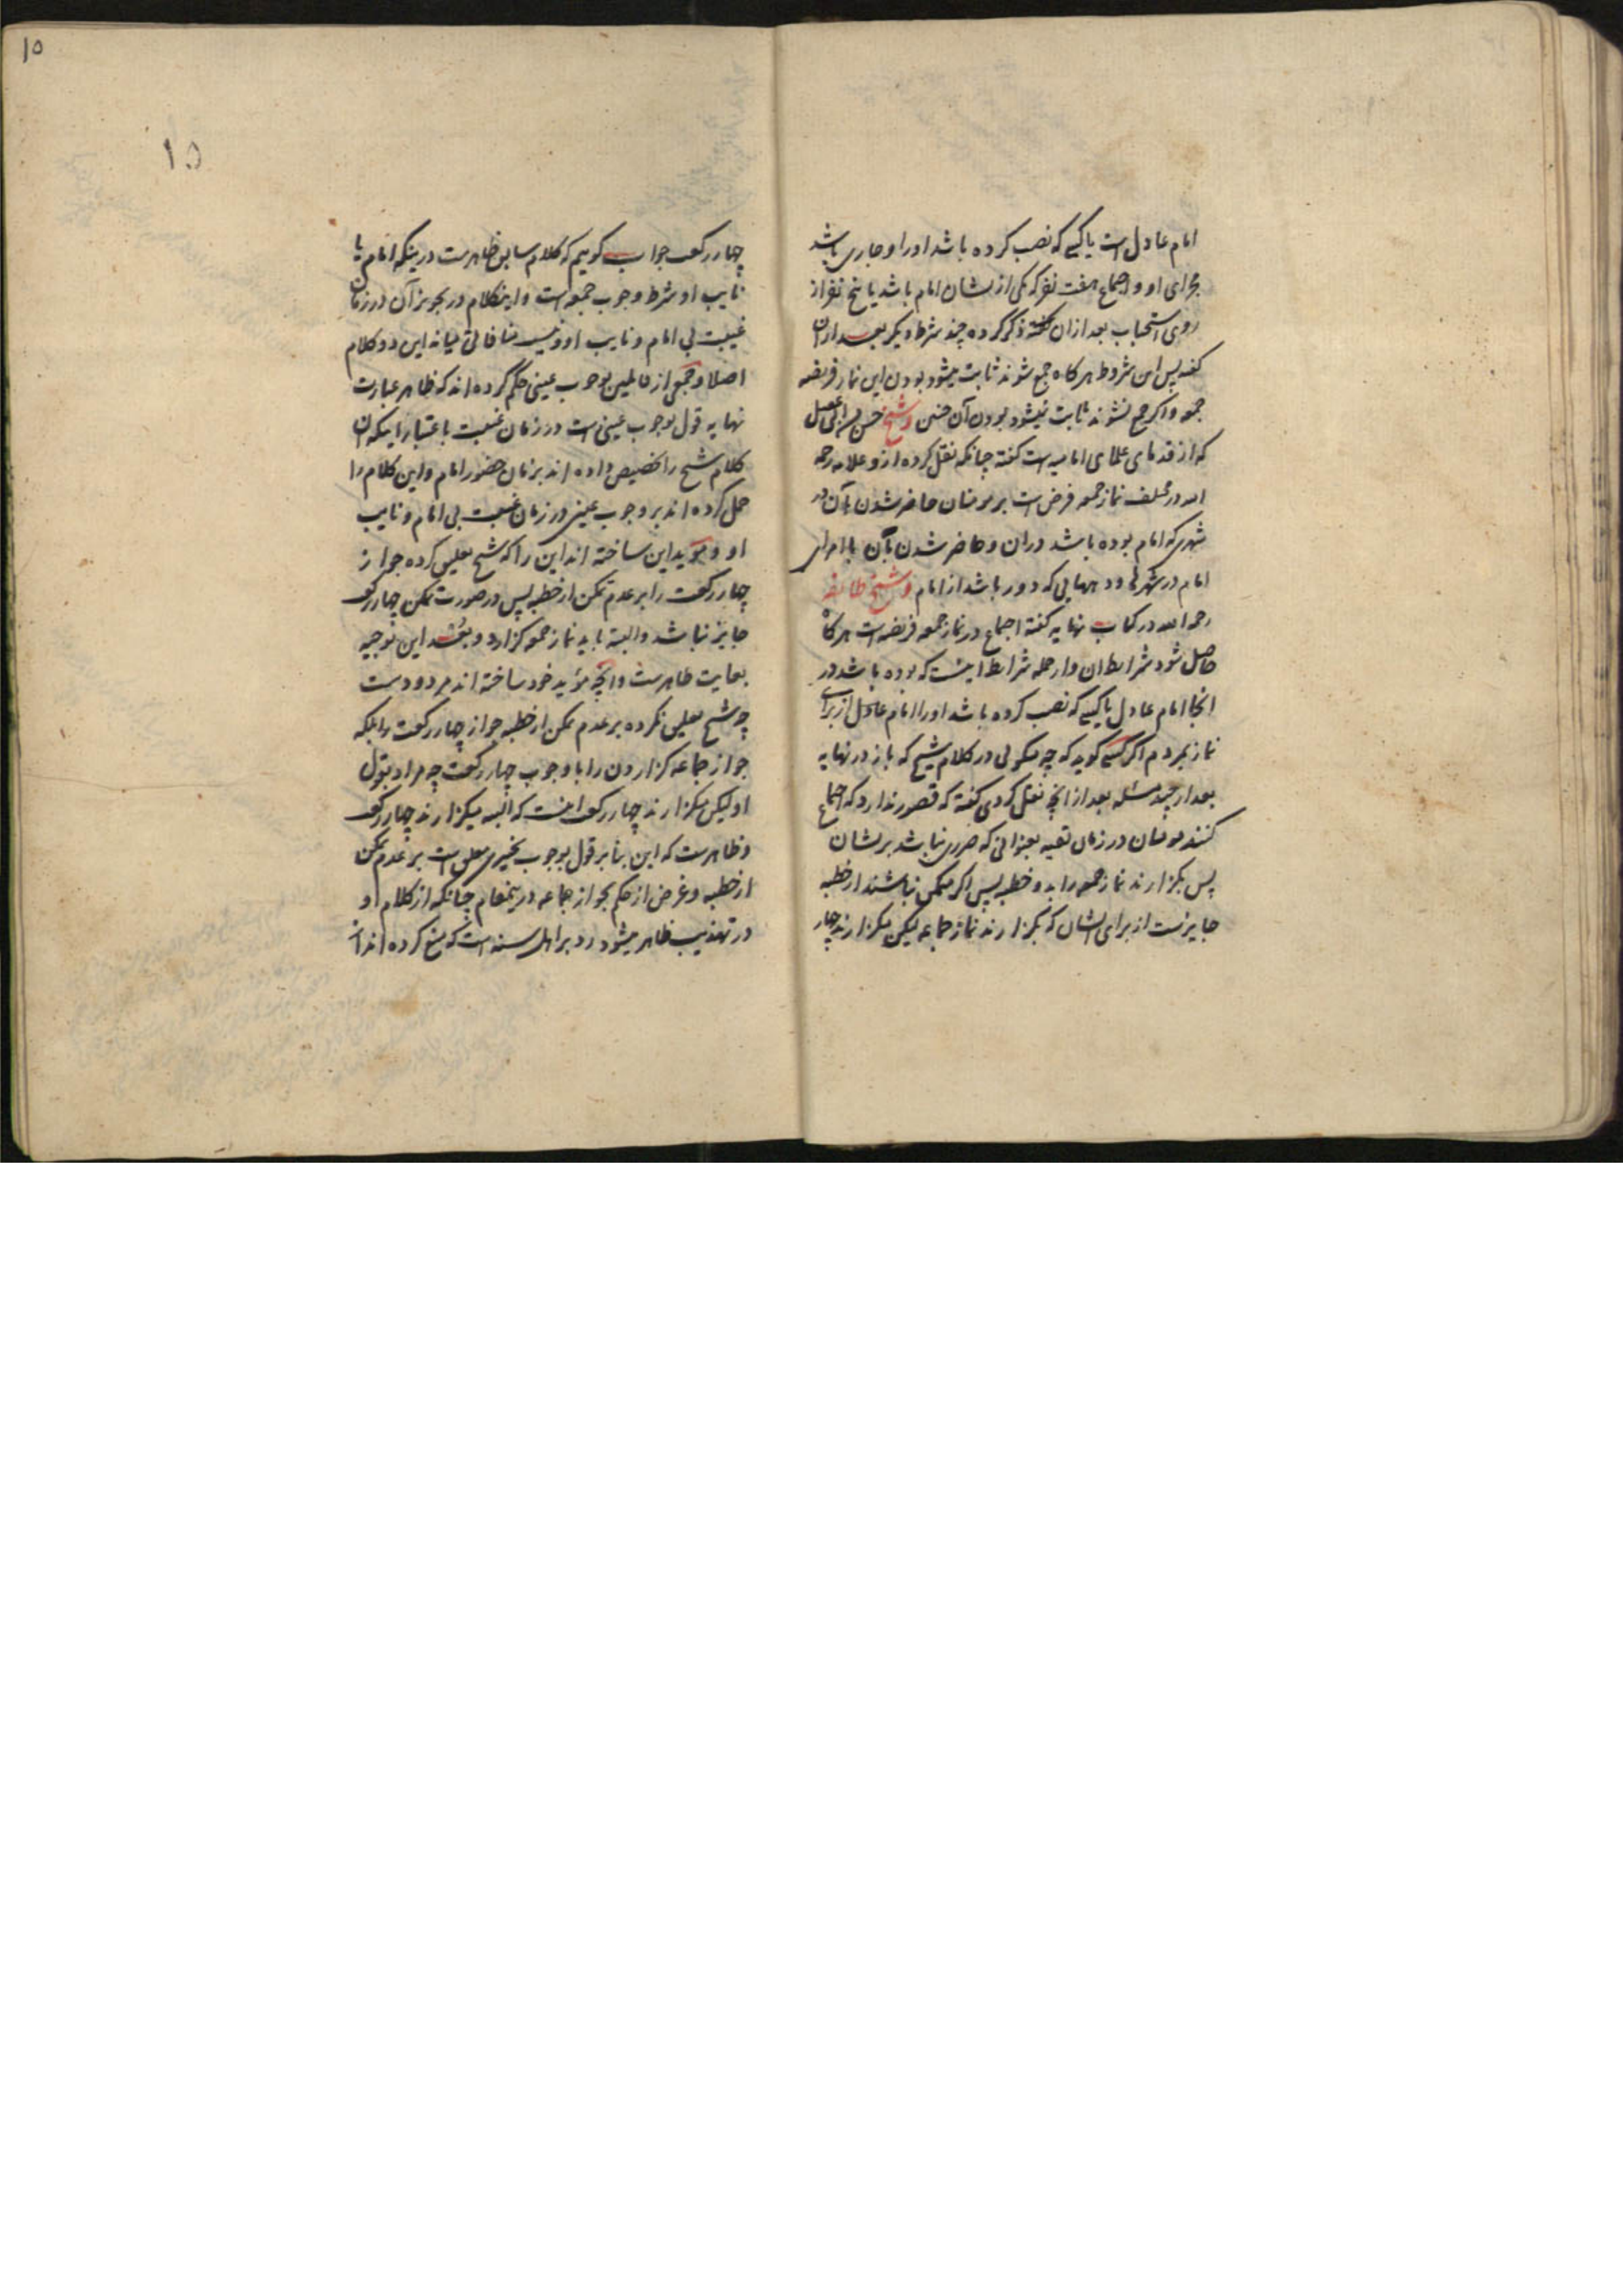 امام عادل است یا کسی که نصب کرده باشد او را و جاری باشد
مجرای او و اجتماع هفت نفر که یکی از یشان امام باشد یا پنج نفر از
روی استحباب بعد از ان گفته ذکر کرده چند شرط دیگر بعد از ان
گفته پس این شروط هر کاه جمع شوند ثابت میشود بودن این نماز فریضه
جمعه و اکر جمع نشوند ثابت نمیشود بودن آن چنین و شیخ حسن بن ابی عقیل
که از قدمای علمای امامیه است گفته چنانکه نقل کرده ازو علامه رحمه
الله در مختلف نماز جمعه فرض است بر مومنان حاضر شدن بآن در
شهری که امام بوده باشد دران و حاضر شدن بآن با امرای
امام در شهرها و دههایی که دور باشد از امام و شیخ طایفه
رحمه الله در کتاب نهایه گفته اجتماع در نماز جمعه فریضه است هر گاه
حاصل شود شرایط ان و از جمله شرایط اینست که بوده باشد در
انجا امام عادل یا کسی که نصب کرده باشد او را امام عادل از برای
نماز بمردم اکر کسی گوید که چه میگوئی در کلام شیخ که باز در نهایه
بعد از چند مسئله بعد از انچه نقل کردی گفته که قصور ندارد که اجتماع
کنند مومنان در زمان تقیه بعنوانی که ضرری نباشد بر یشان
پس بگزارند نماز جمعه را بدو خطبه پس اکر متمکن نباشند از خطبه
جایزست از برای ایشان که بگزارند نماز جماعه لیکن بگزارند چهار
۱۵
۱۵
چهار رکعت جواب گوییم که کلام سابق ظاهرست درینکه امام یا
نایب او شرط وجوب جمعه است و اینکلام در تجویز آن در زمان
غیبت بی امام و نایب او و نیست منافاتی میانه این دو کلام
اصلا و جمعی از قایلین بوجوب عینی حکم کرده اند که ظاهر عبارت
نهایه قول بوجوب عینی است در زمان غیبت باعتبار اینکه ان
کلام شیخ را تخصیص داده اند بزمان حضور امام و این کلام را
حمل کرده اند بر وجوب عینی در زمان غیبت بی امام و نایب
او و مؤید این ساخته اند این را که شیخ تعلیق کرده جواز
چهار رکعت را بر عدم تمکن از خطبه پس در صورت تمکن چهار رکعت
جایز نباشد و البته باید نماز جمعه گزارد و بعد این توجیه
بغایت ظاهرست و انچه مؤید خود ساخته اند مردودست
چه شیخ تعلیق نکرده بر عدم تمکن از خطبه جواز چهار رکعت را بلکه
جواز جماعه گزاردن را با وجوب چهار رکعت چه مراد بقول
او لیکن بگزارند چهار رکعت اینست که البته میگزارند چهار رکعت
و ظاهرست که این بنا بر قول بوجوب تخییری معلق است بر عدم تمکن
از خطبه و غرض از حکم بجواز جماعه درینمقام چنانکه از کلام او
در تهذیب ظاهر میشود رد بر اهل سنه است که منع کرده اند از